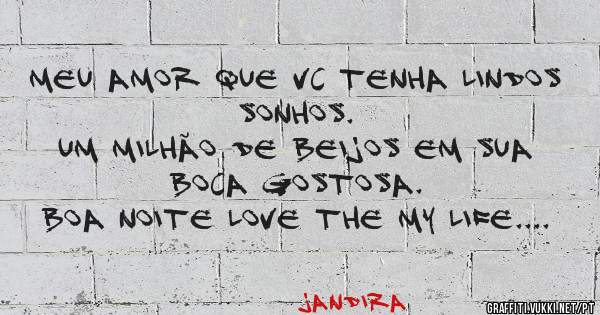 MEU AMOR QUE VC TENHA LINDOS
SONHOS.
UM MILHÃO DE BEIJOS EM SUA
BOCA GOSTOSA.
BOA NOITE LOVE THE MY LIFE....
JANDIRA
GRAFFITI.VUKKI.NET/PT